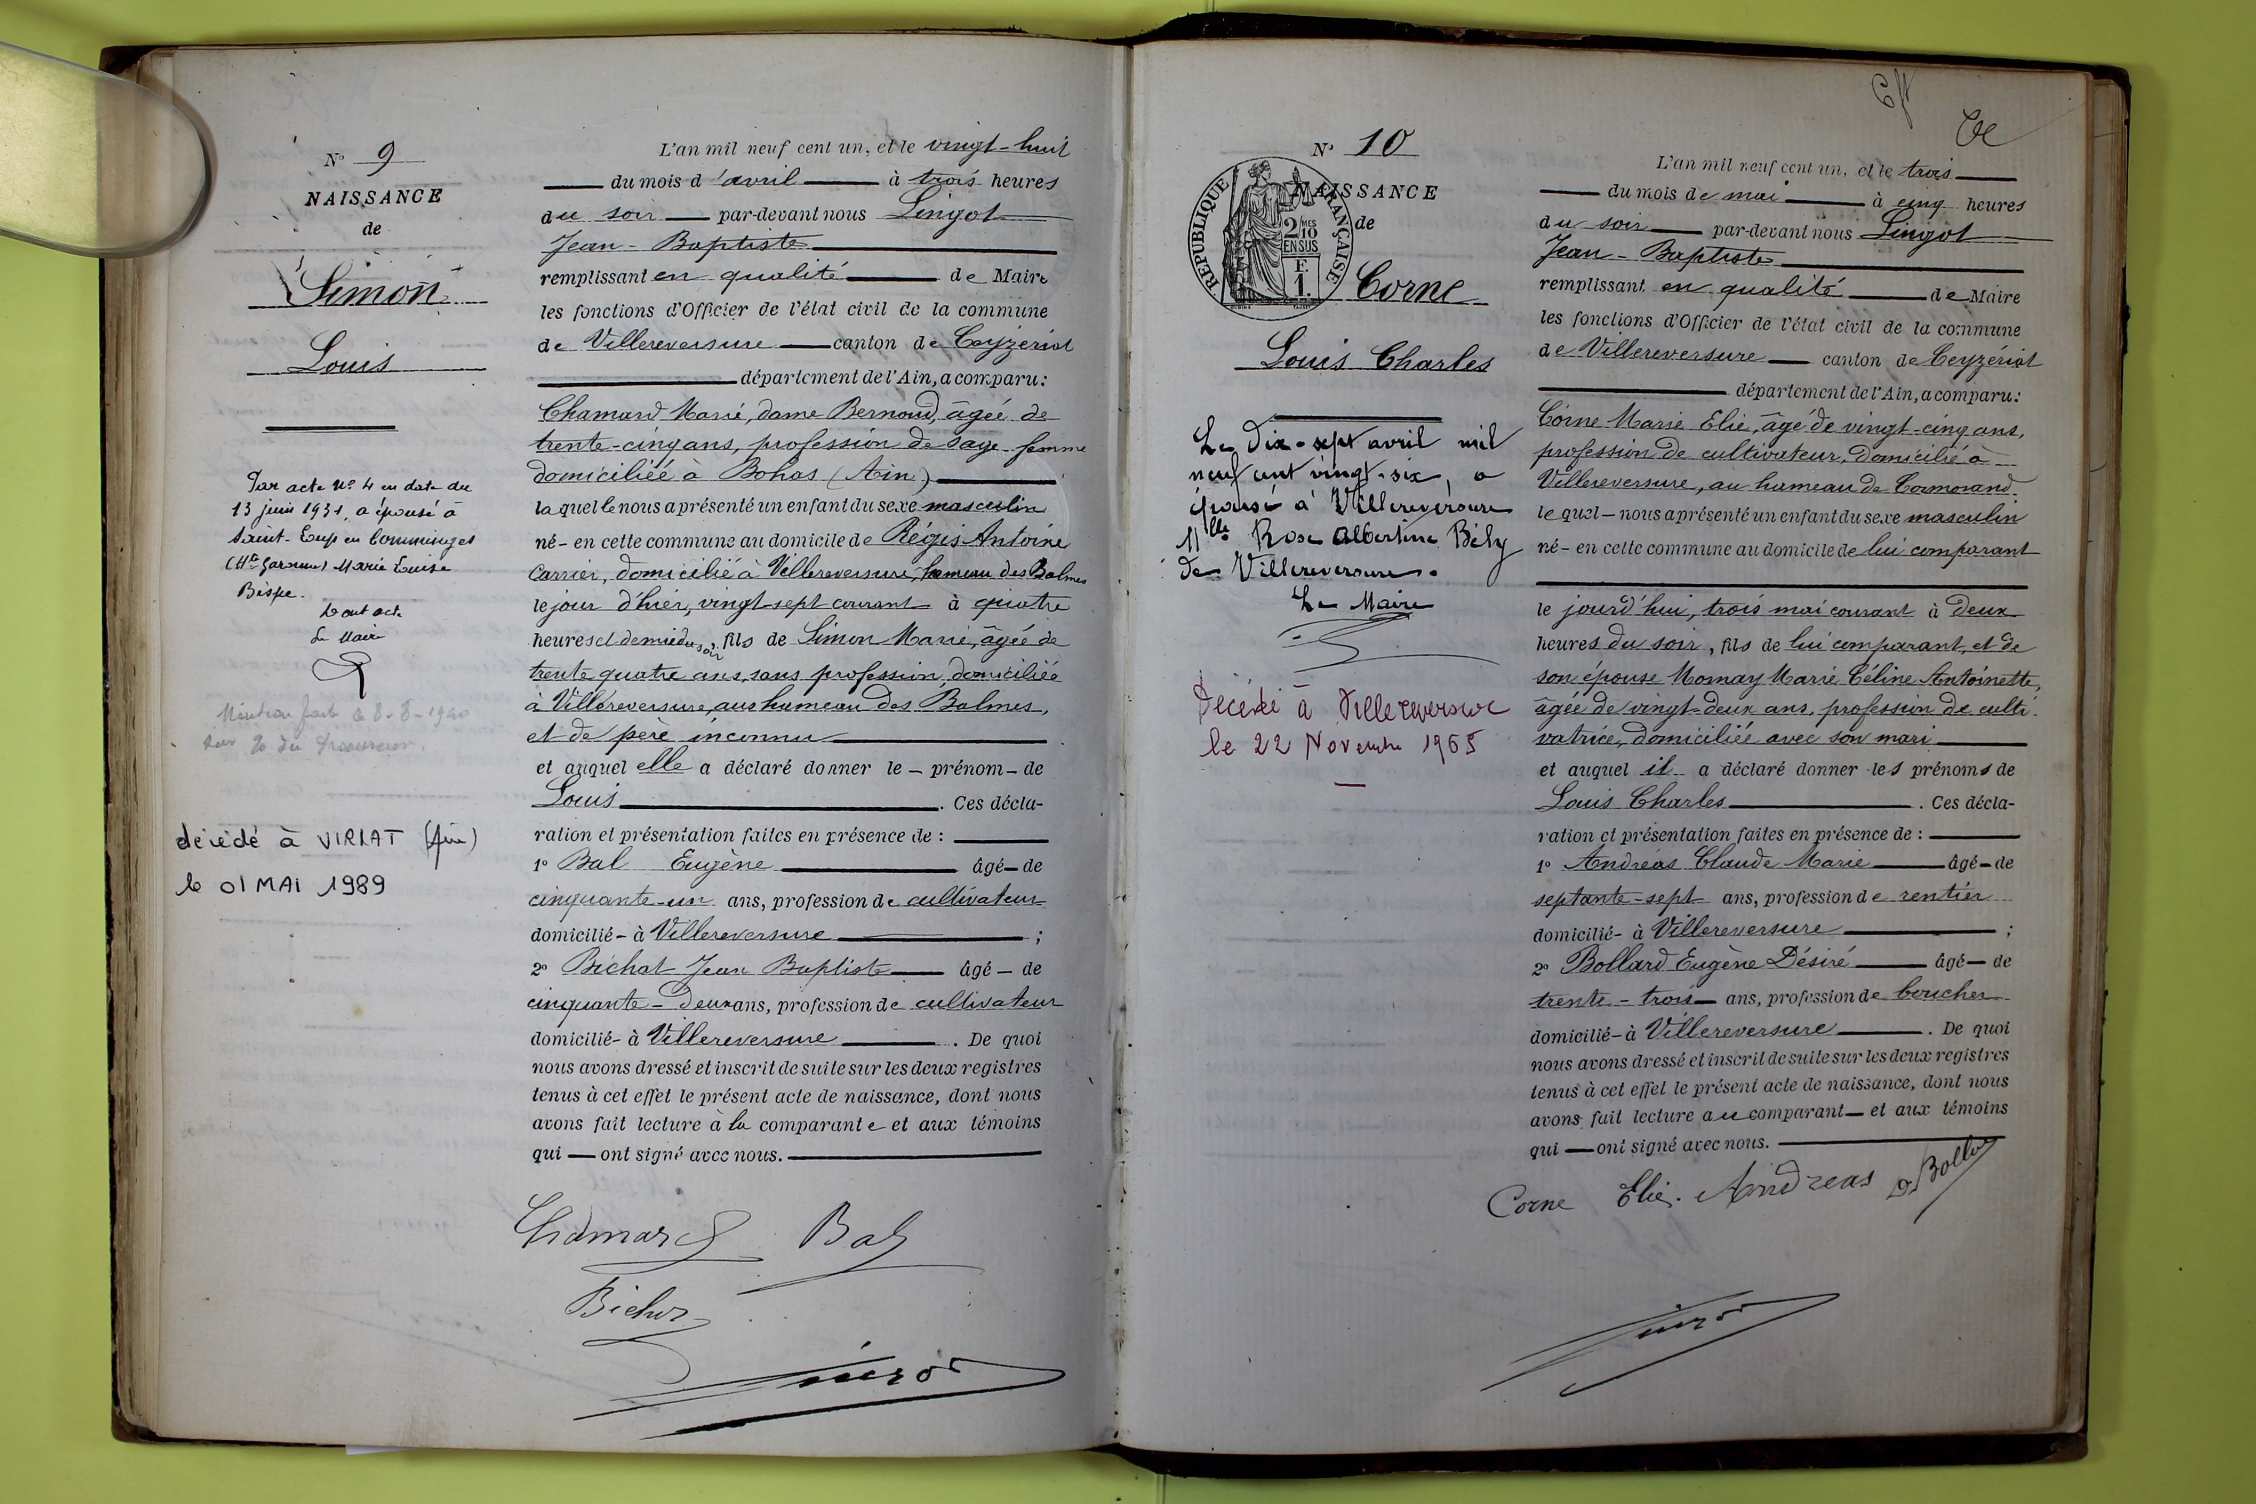 N° 9
NAISSANCE
de
Simon
Louis
Par acte n° 4 en date du
13 juin 1931, a épousé à
Saint-Loup en Comminges
(Hte Garonne) Marie Louise
Bispe.
Dont acte
Le Maire
Mention faite le 8-8-1940
décédé à VIRIAT (Ain)
le 01 MAI 1989
L'an mil neuf cent un, et le vingt-huit
du mois d'avril à trois heures
du soir par-devant nous Lingot
Jean-Baptiste
remplissant en qualité de Maire
les fonctions d'Officier de l'état civil de la commune
de Villereversure canton de Ceyzériat
département de l'Ain, a comparu:
Chamard Marie, dame Bernoud, âgée de
trente-cinq ans, profession de sage-femme
domiciliée à Bohas (Ain)
laquelle nous a présenté un enfant du sexe masculin
né - en cette commune au domicile de Régis Antoine
Carrier, domicilié à Villereversure, hameau des Balmes
le jour d'hier, vingt-sept courant à quatre
heures et demie du soir, fils de Simon Marie, âgée de
trente quatre ans, sans profession, domiciliée
à Villereversure, au hameau des Balmes,
et de père inconnu
et auquel elle a déclaré donner le - prénom - de
Louis. Ces décla-
ration et présentation faites en présence de :
1° Bal Eugène âgé - de
cinquante-un ans, profession de cultivateur
domicilié - à Villereversure ;
2° Bichat Jean Baptiste âgé - de
cinquante-deux ans, profession de cultivateur
domicilié - à Villereversure. De quoi
nous avons dressé et inscrit de suite sur les deux registres
tenus à cet effet le présent acte de naissance, dont nous
avons fait lecture à la comparante et aux témoins
qui - ont signé avec nous.
Chamard Bal
Bichat
N° 10
NAISSANCE
de
RÉPUBLIQUE FRANÇAISE
2 MES
10
EN SUS
F.
1.
Corne
Louis Charles
Le Dix-sept avril mil
neuf cent vingt-six, a
épousé à Villereversure
Mlle Rose Albertine Bély
de Villereversure.
Le Maire
Décédé à Villereversure
le 22 Novembre 1965
L'an mil neuf cent un, et le trois
du mois de mai à cinq heures
du soir par-devant nous Lingot
Jean-Baptiste
remplissant en qualité de Maire
les fonctions d'Officier de l'état civil de la commune
de Villereversure canton de Ceyzériat
département de l'Ain, a comparu:
Corne Marie Elie, âgé de vingt-cinq ans,
profession de cultivateur, domicilié à
Villereversure, au hameau de Cormorand.
lequel - nous a présenté un enfant du sexe masculin
né - en cette commune au domicile de lui comparant
le jourd'hui, trois mai courant à deux
heures du soir, fils de lui comparant, et de
son épouse Mornay Marie Céline Antoinette,
âgée de vingt-deux ans, profession de culti-
vatrice, domiciliée avec son mari
et auquel il a déclaré donner les prénoms de
Louis Charles. Ces décla-
ration et présentation faites en présence de :
1° Andréas Claude Marie âgé - de
septante-sept ans, profession de rentier
domicilié - à Villereversure ;
2° Bollard Eugène Désiré âgé - de
trente-trois ans, profession de boucher
domicilié - à Villereversure. De quoi
nous avons dressé et inscrit de suite sur les deux registres
tenus à cet effet le présent acte de naissance, dont nous
avons fait lecture au comparant - et aux témoins
qui - ont signé avec nous.
Corne Elie. Andreas